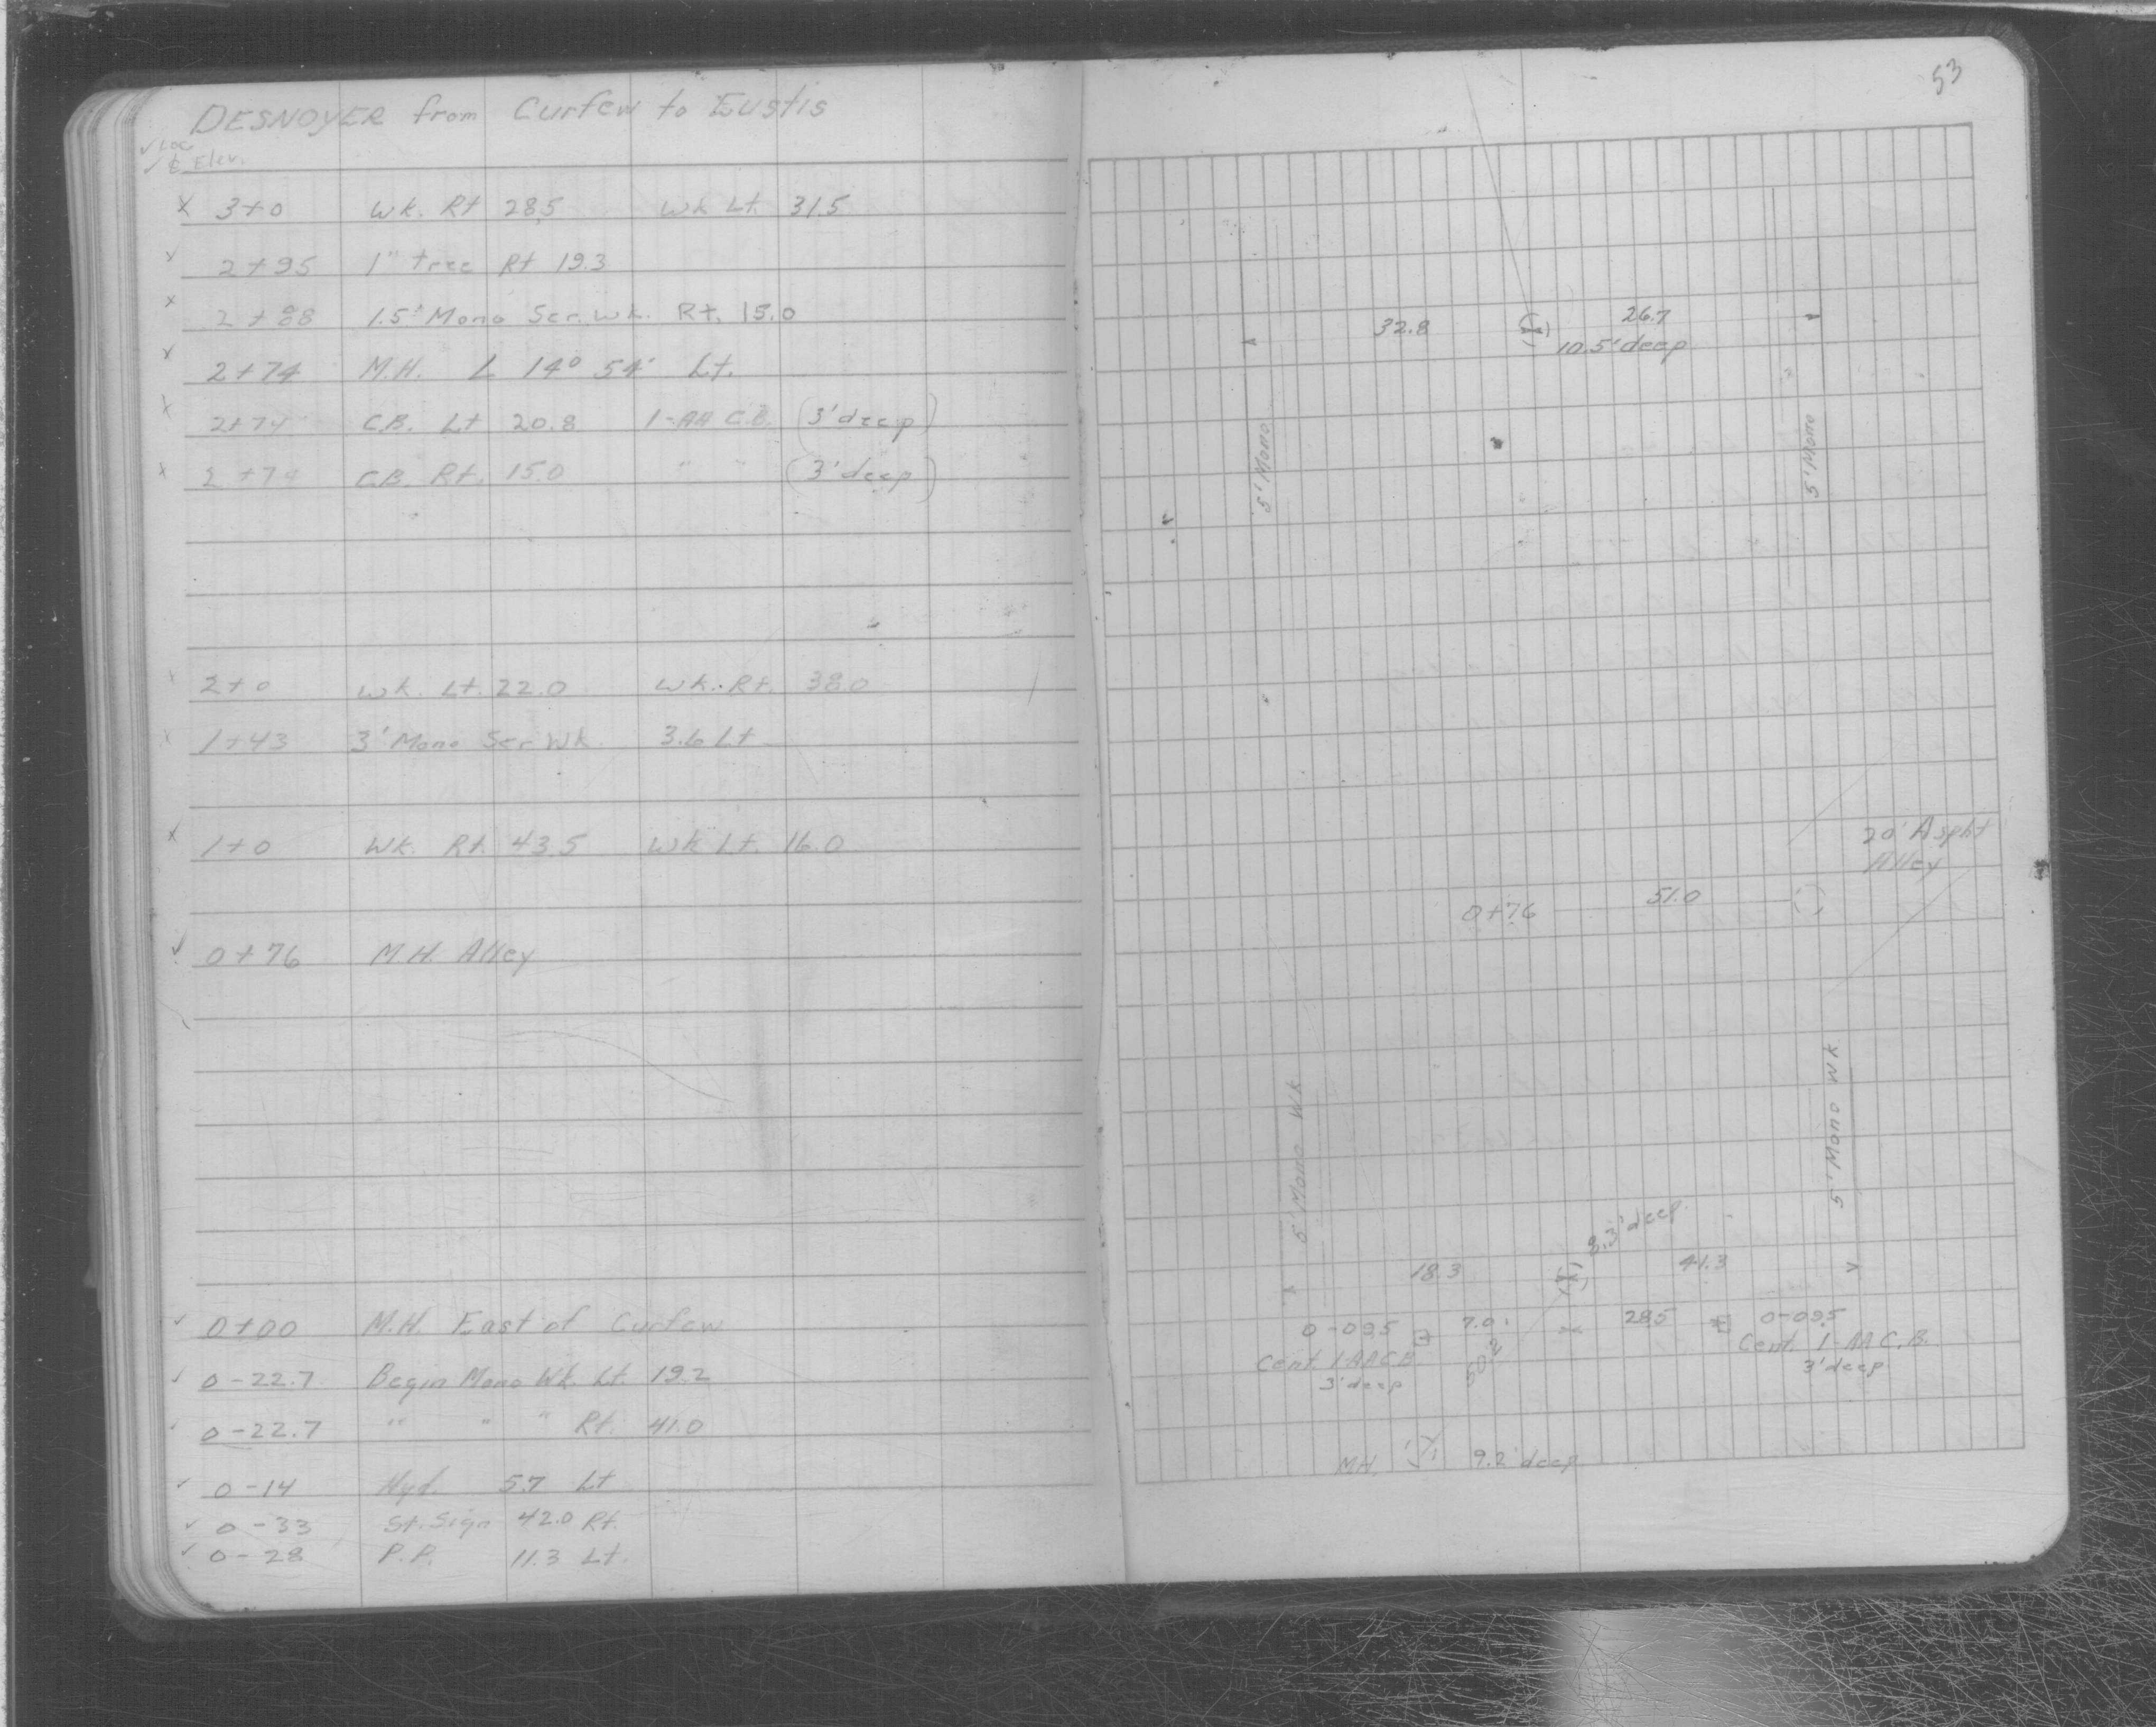 DESNOYER from Curfew to Eustis
✓ Loc
✓ ¢ Elev.
x 3+0 Wk. Rt 28.5 Wk Lt. 31.5
✓ 2+95 1" tree Rt 19.3
x 2+88 1.5' Mono Ser. Wk. Rt. 15.0
x 2+74 M.H. ∠ 14° 54' Lt.
x 2+74 C.B. Lt 20.8 1-AA C.B. (3' deep)
x 2+74 C.B. Rt. 15.0 " " (3' deep)
x 2+0 Wk. Lt. 22.0 Wk. Rt. 38.0
x 1+43 3' Mono Ser Wk. 3.6 Lt
x 1+0 Wk. Rt. 43.5 Wk Lt. 16.0
✓ 0+76 M.H. Alley
✓ 0+00 M.H. East of Curfew
✓ 0-22.7 Begin Mono Wk. Lt. 19.2
✓ 0-22.7 " " " Rt. 41.0
✓ 0-14 Hyd. 5.7 Lt
✓ 0-33 St. Sign 42.0 Rt.
✓ 0-28 P.P. 11.3 Lt.
53
32.8 26.7
10.5' deep
5' Mono
5' Mono
20' Asplt
Alley
0+76 51.0
5' Mono Wk
5' Mono Wk.
8.3' deep
18.3 41.3
0-09.5 7.0 28.5 0-09.5
Cent. 1-AA C.B. Cent. 1-AA C.B.
3' deep 3' deep
M.H. 9.2' deep